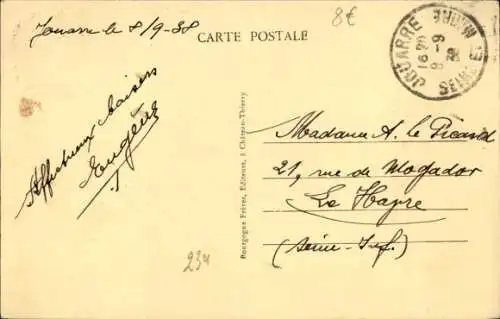 Jouarre le 8/9-38
8€
CARTE POSTALE
JOUARRE
1620
9-9
38
SEINE-ET-MARNE
Affectueux baisers
Eugène
Bourgogne Frères, Editeurs, à Château-Thierry
Madame A. le Picard
21, rue de Mogador
Le Havre
(Seine-Inf.)
234